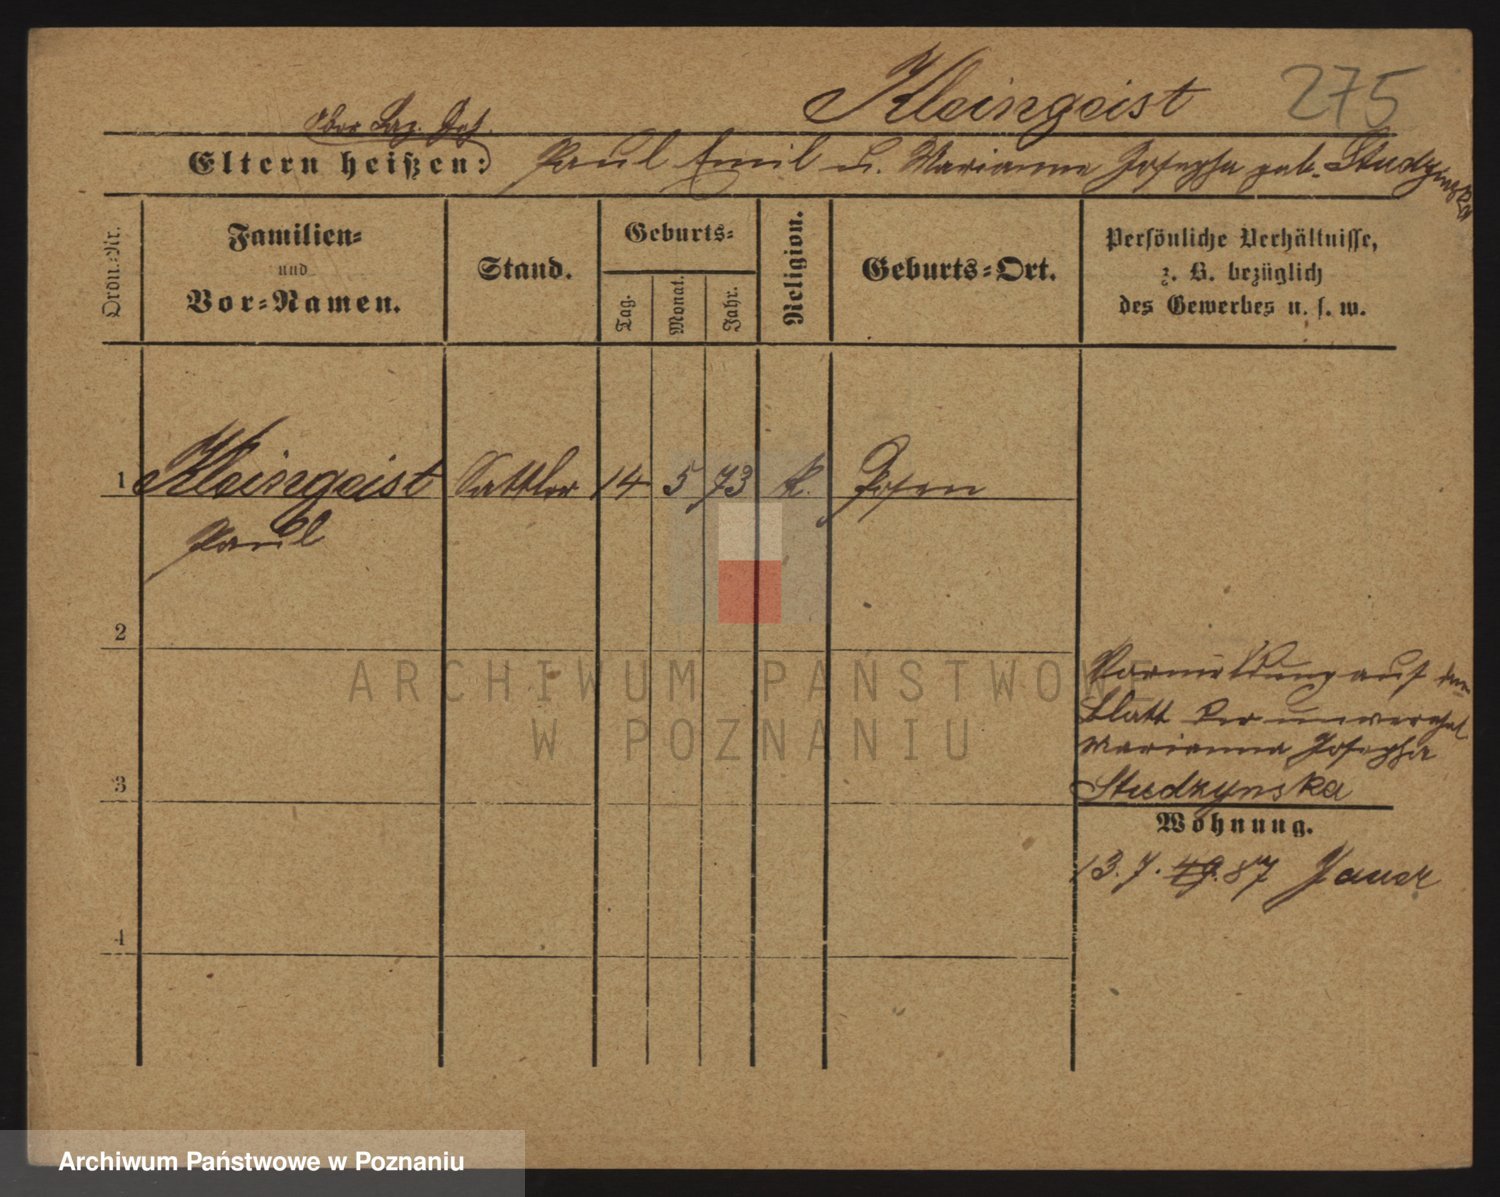 Kleingeist 275
Eltern heißen: Paul Emil u. Marianna Josepha geb. Studzynska
Ordn.-Nr.
Familien-
und
Vor-Namen.
Stand.
Geburts-
Tag.
Monat.
Jahr.
Religion.
Geburts-Ort.
Persönliche Verhältnisse,
z. B. bezüglich
des Gewerbes u. s. w.
1 Kleingeist Sattler 14 5 73 k. Posen
Paul
2
ARCHIWUM PAŃSTWOWE
W POZNANIU
auf dem
Blatt der unverehel.
Marianna Josepha
3 Studzynska
Wohnung.
13. 7. 87 Jauer
4
Archiwum Państwowe w Poznaniu